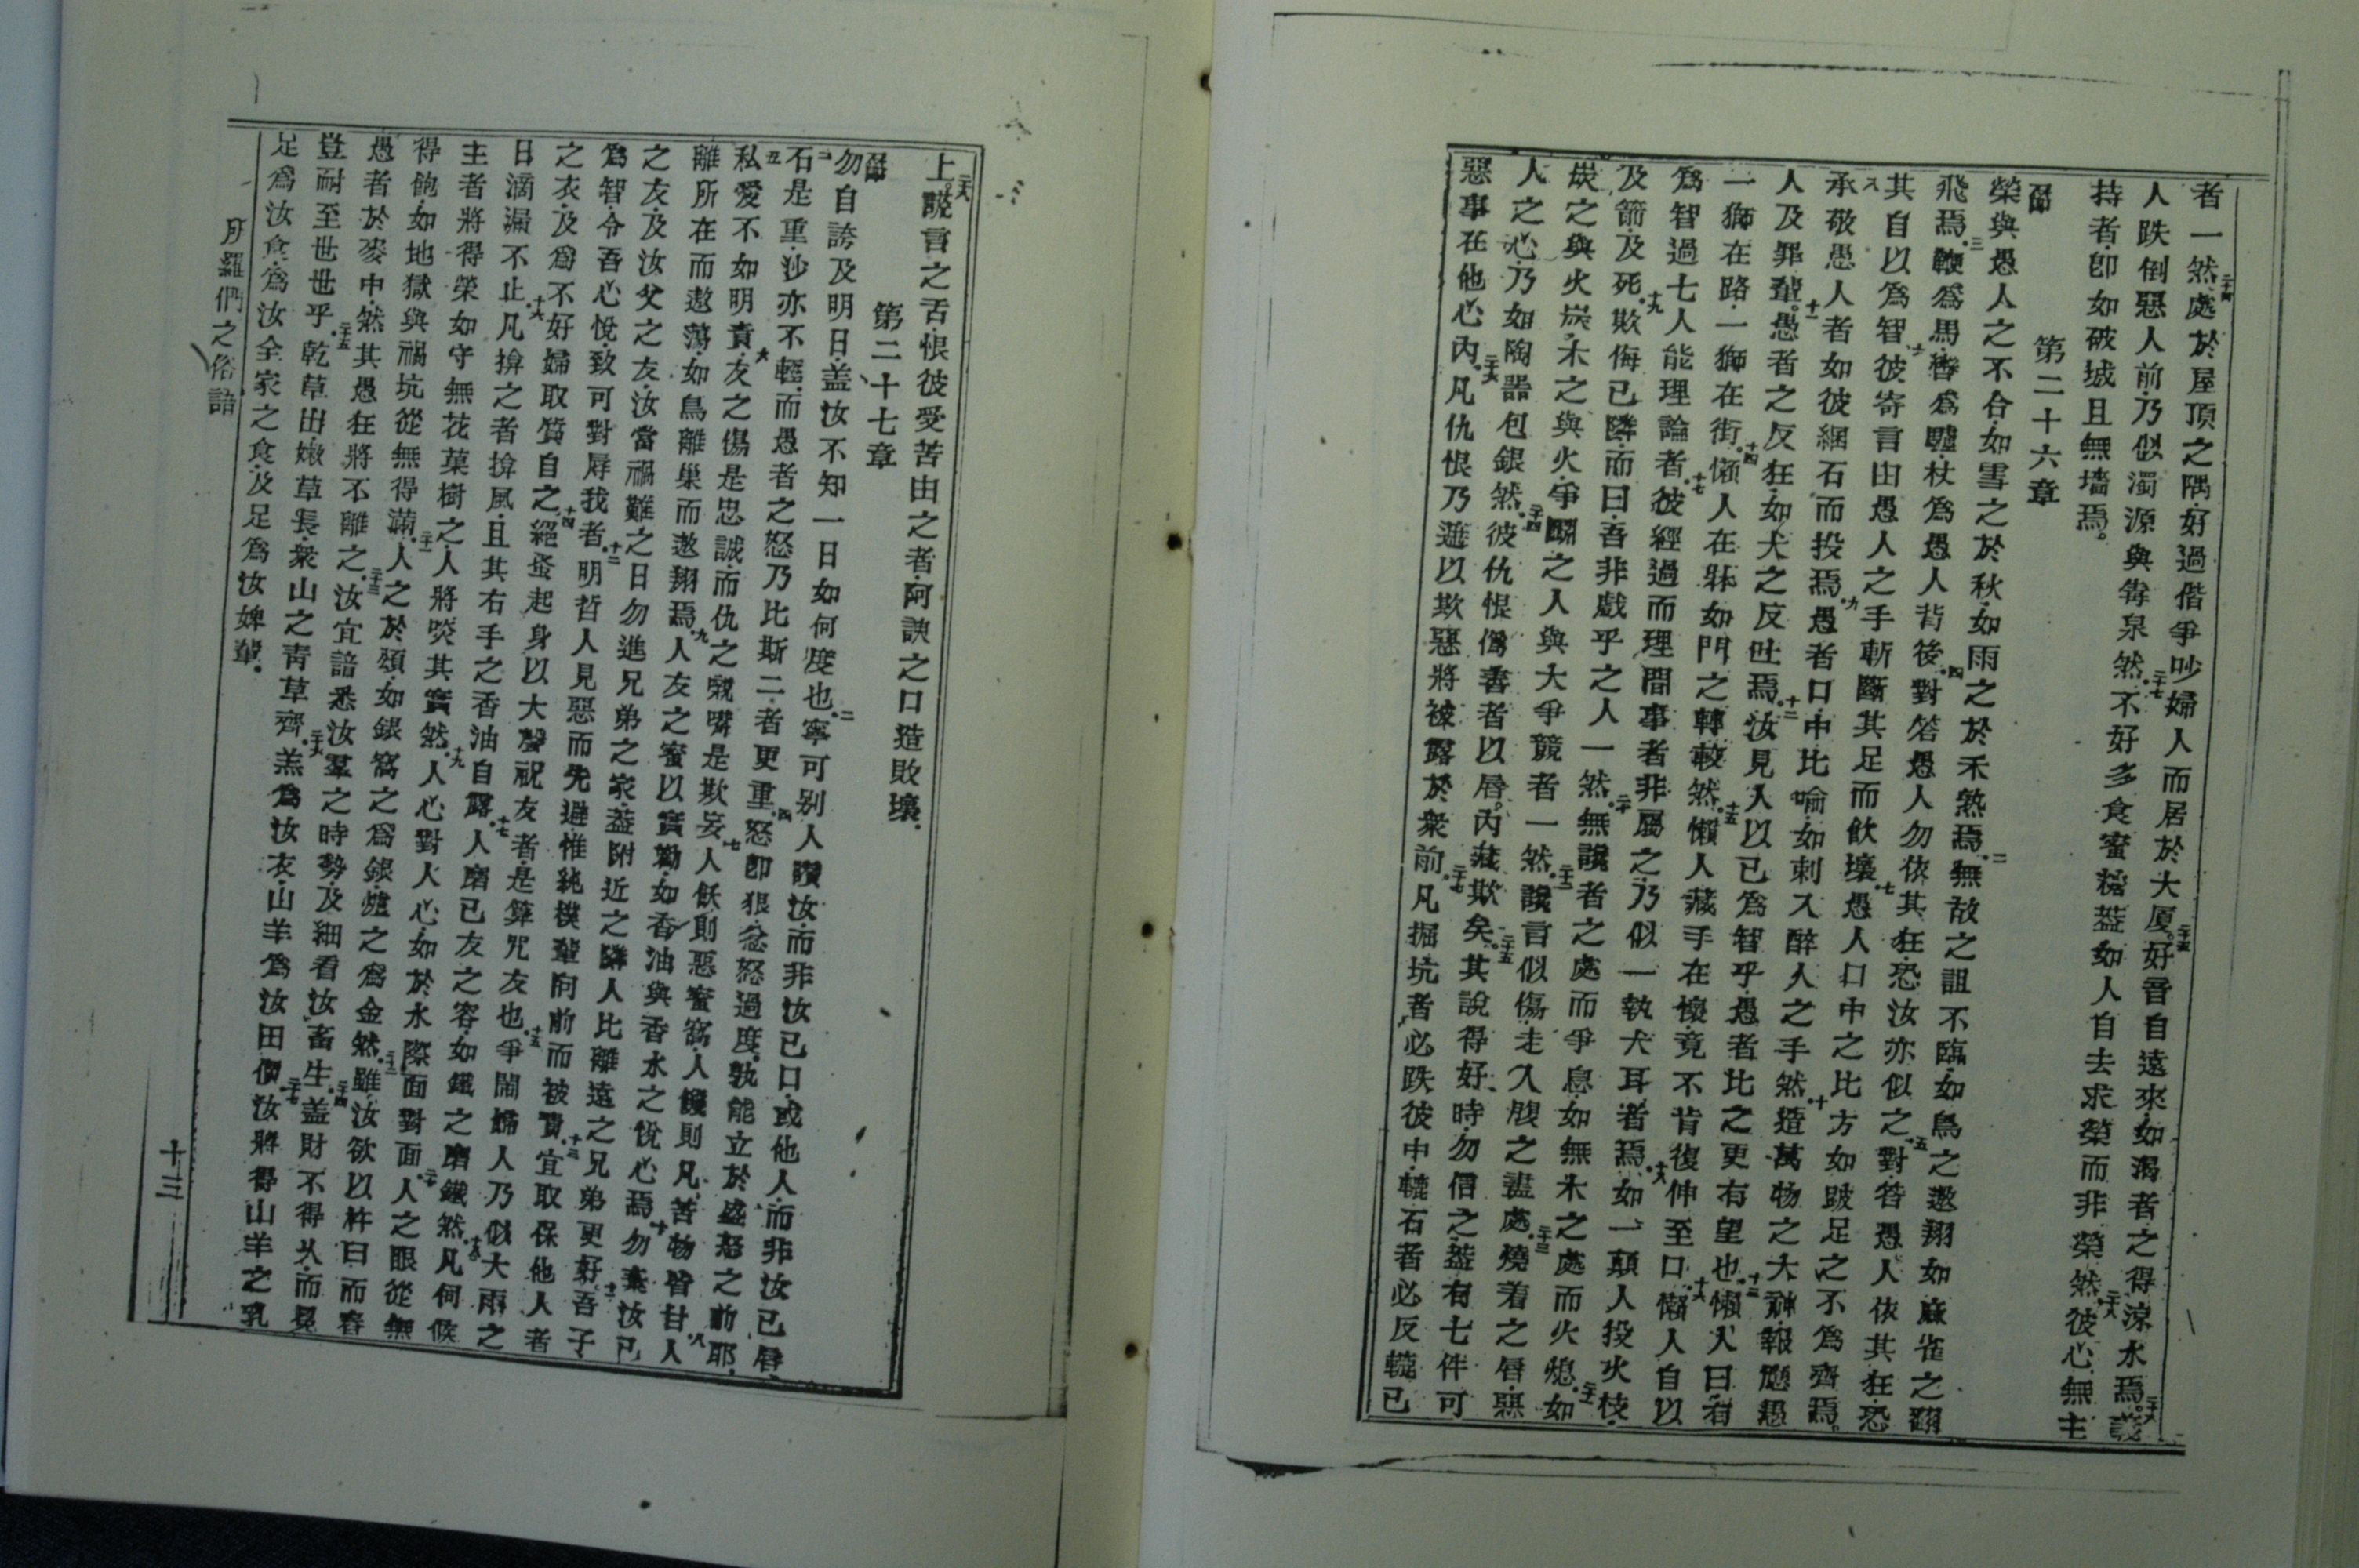 者一然。二十四處於屋頂之隅、好過偕爭吵婦人而居於大厦。二十五好音自遠來、如渴者之得涼水焉。二十六義
人跌倒惡人前、乃似濁源與毒泉然。二十七不好多食蜜糖、蓋如人自去求榮而非榮然。二十八彼心無主
持者、即如破城且無墻焉。
第二十六章
一節
榮與愚人之不合、如雪之於秋、如雨之於禾熟焉。二無故之詛不臨、如鳥之遨翔、如麻雀之翻
飛焉。三鞭爲馬、轡爲驢、杖爲愚人背後。四對答愚人勿依其狂、恐汝亦似之。五對答愚人依其狂、恐
其自以爲智。六彼寄言由愚人之手、斬斷其足而飲壞。七愚人口中之比方、如跛足之不爲齊焉。
八承敬愚人者、如彼綑石而投焉。九愚者口中比喻、如刺入醉人之手然。十造萬物之大神、報應愚
人及罪輩。十一愚者之反狂、如犬之反吐焉。十二汝見人以己爲智乎、愚者比之更有望也。十三懶人曰、有
一獅在路、一獅在街。十四懶人在牀、如門之轉較然。十五懶人藏手在懷、竟不肯復伸至口。十六懶人自以
爲智、過七人能理論者。十七彼經過而理閒事者、非屬之、乃似一執犬耳者焉。十八如一顛人投火枝、
及箭、及死。十九欺侮己隣、而曰、吾非戲乎之人一然。二十無讒者之處而爭息、如無木之處而火熄。二十一如
炭之與火炭、木之與火、爭鬭之人與大爭競者一然。二十二讒言似傷、走入腹之盡處。二十三燒着之唇、惡
人之心、乃如陶器包銀然。二十四彼仇恨僞善者以唇、內藏欺矣。二十五其說得好時、勿信之、蓋有七件可
惡事在他心內。二十六凡仇恨乃遮以欺、惡將被露於衆前。二十七凡掘坑者、必跌彼中、轆石者必反轆己
上。二十八謊言之舌、恨彼受苦由之者、阿諛之口造敗壞。
第二十七章
一節
勿自誇及明日、蓋汝不知一日如何度也。二寧可别人讚汝、而非汝己口、或他人、而非汝己唇、
三石是重、沙亦不輕、而愚者之怒乃比斯二者更重。四怒即狠、忿怒過度、孰能立於盛怒之前耶、
五私愛不如明責。六友之傷是忠誠、而仇之親嘴是欺妄。七人飫則惡蜜窩、人饑則凡苦物皆甘。八人
離所在而遨蕩、如鳥離巢而遨翔焉。九人友之蜜以實勸、如香油與香水之悅心焉。十勿棄汝己
之友、及汝父之友、汝當禍難之日、勿進兄弟之家、蓋附近之隣人比離遠之兄弟更好。十一吾子
爲智、令吾心悅、致可對辱我者。十二明哲人見惡而先避、惟純樸輩向前而被責。十三宜取保他人者
之衣、及爲不好婦取質自之。十四絕蚤起身、以大聲祝友者、是算咒友也。十五爭鬧婦人乃似大雨之
日滴漏不止。十六凡揜之者揜風、且其右手之香油自露。十七人磨己友之容、如鐵之磨鐵然。十八凡伺候
主者將得榮、如守無花菓樹之人、將啖其實然。十九人心對人心、如於水際面對面。二十人之眼從無
得飽、如地獄與禍坑從無得滿。二十一人之於頌、如銀窩之爲銀、爐之爲金然。二十二雖汝欲以杵臼而舂
愚者於麥中、然其愚狂將不離之。二十三汝宜諳悉汝羣之時勢、及細看汝畜生。二十四蓋財不得久、而冕
豈耐至世世乎。二十五乾草出、嫩草長、衆山之靑草齊。二十六羔爲汝衣、山羊爲汝田價。二十七汝將得山羊之乳
足爲汝食、爲汝全家之食、及足爲汝婢輩。
所羅們之俗語
十三